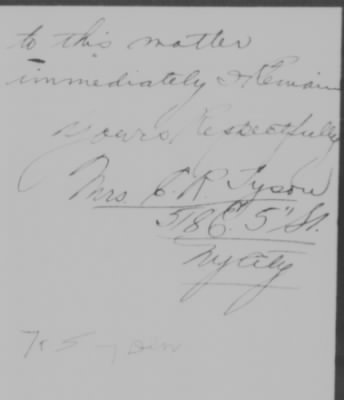 to this matter
immediately I Remain
Yours Respectfully
Mrs C. R Tyson
518 E. 5" St.
Ny City